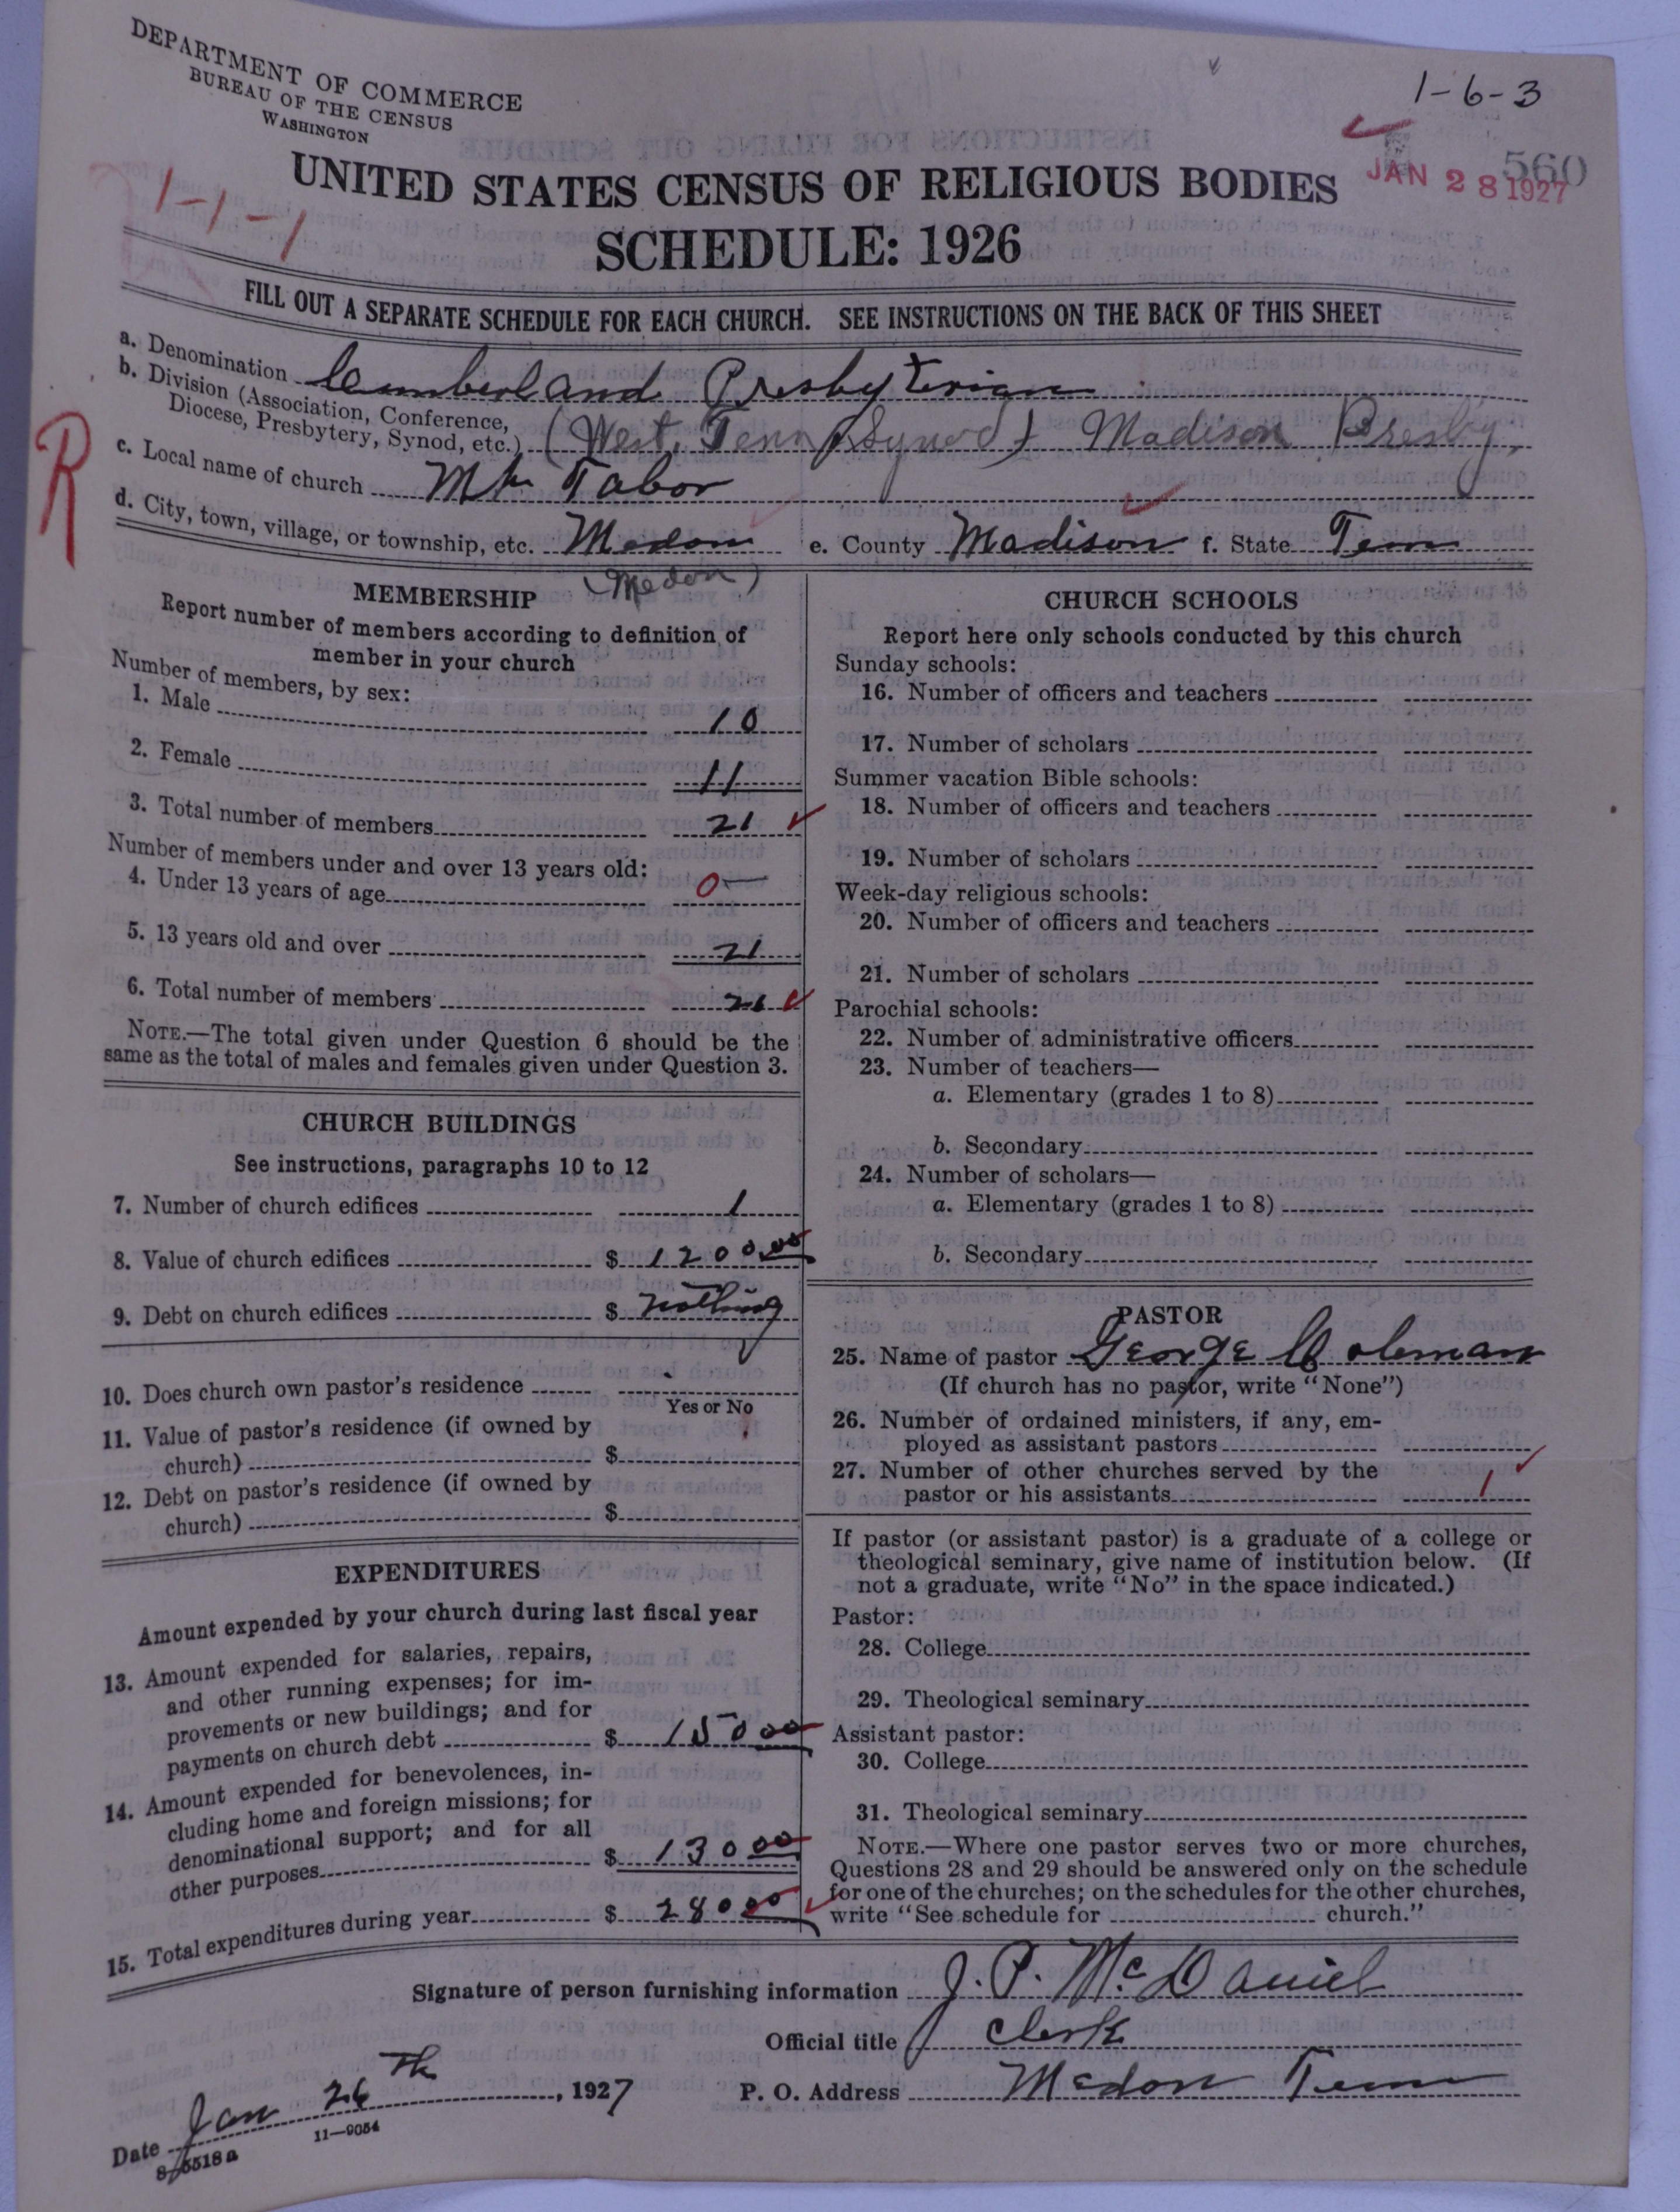 DEPARTMENT OF COMMERCE
BUREAU OF THE CENSUS
WASHINGTON
1-6-3
560
JAN 28 1927
1-1-1
UNITED STATES CENSUS OF RELIGIOUS BODIES
SCHEDULE: 1926
FILL OUT A SEPARATE SCHEDULE FOR EACH CHURCH. SEE INSTRUCTIONS ON THE BACK OF THIS SHEET
R
a. Denomination Cumberland Presbyterian
b. Division (Association, Conference,
Diocese, Presbytery, Synod, etc.) (West. Tenn Synod) Madison Presby.
c. Local name of church Mt Tabor
d. City, town, village, or township, etc. Medon e. County Madison f. State Tenn
(Medon)
MEMBERSHIP
Report number of members according to definition of
member in your church
Number of members, by sex:
1. Male 10
2. Female 11
3. Total number of members 21
Number of members under and over 13 years old:
4. Under 13 years of age 0
5. 13 years old and over 21
6. Total number of members 21
NOTE.—The total given under Question 6 should be the
same as the total of males and females given under Question 3.
CHURCH BUILDINGS
See instructions, paragraphs 10 to 12
7. Number of church edifices 1
8. Value of church edifices $ 1200.00
9. Debt on church edifices $ nothing
10. Does church own pastor's residence
Yes or No
11. Value of pastor's residence (if owned by
church) $
12. Debt on pastor's residence (if owned by
church) $
EXPENDITURES
Amount expended by your church during last fiscal year
13. Amount expended for salaries, repairs,
and other running expenses; for im-
provements or new buildings; and for
payments on church debt $ 150 00
14. Amount expended for benevolences, in-
cluding home and foreign missions; for
denominational support; and for all
other purposes $ 130 00
15. Total expenditures during year $ 280 00
CHURCH SCHOOLS
Report here only schools conducted by this church
Sunday schools:
16. Number of officers and teachers
17. Number of scholars
Summer vacation Bible schools:
18. Number of officers and teachers
19. Number of scholars
Week-day religious schools:
20. Number of officers and teachers
21. Number of scholars
Parochial schools:
22. Number of administrative officers
23. Number of teachers—
a. Elementary (grades 1 to 8)
b. Secondary
24. Number of scholars—
a. Elementary (grades 1 to 8)
b. Secondary
PASTOR
25. Name of pastor George Coleman
(If church has no pastor, write "None")
26. Number of ordained ministers, if any, em-
ployed as assistant pastors
27. Number of other churches served by the
pastor or his assistants 1
If pastor (or assistant pastor) is a graduate of a college or
theological seminary, give name of institution below. (If
not a graduate, write "No" in the space indicated.)
Pastor:
28. College
29. Theological seminary
Assistant pastor:
30. College
31. Theological seminary
NOTE.—Where one pastor serves two or more churches,
Questions 28 and 29 should be answered only on the schedule
for one of the churches; on the schedules for the other churches,
write "See schedule for church."
Signature of person furnishing information J. P. McDaniel
Official title Clerk
Date Jan 26 th, 1927 P. O. Address Medon Tenn
8-5518a 11—9054